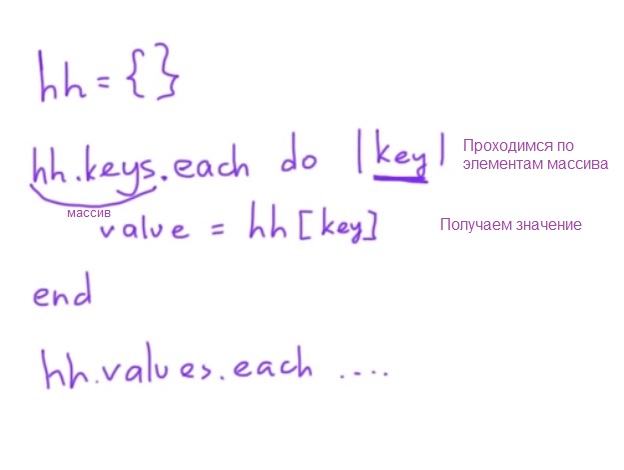 hh = {}
hh.keys.each do |key|
Проходимся по
элементам массива
массив
value = hh[key]
Получаем значение
end
hh.values.each ....